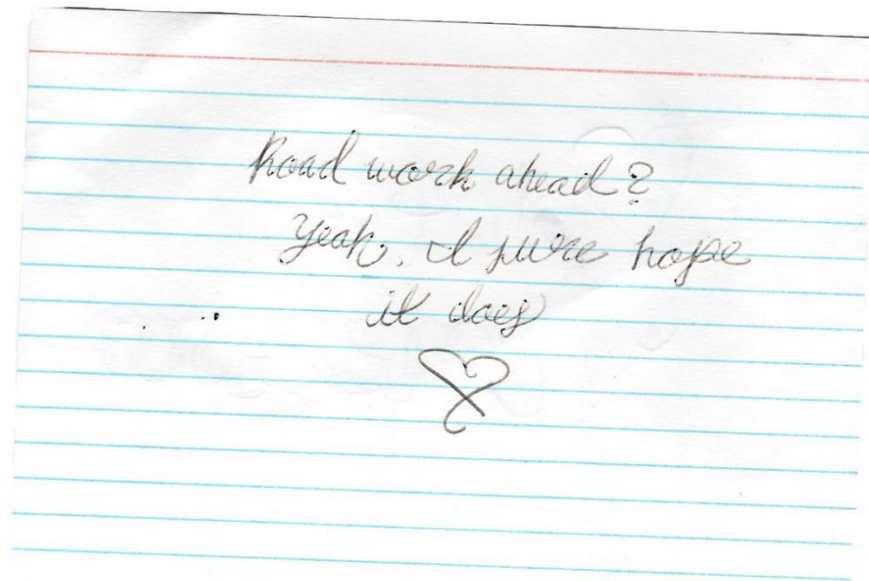 Road work ahead?
Yeah, I sure hope
it does